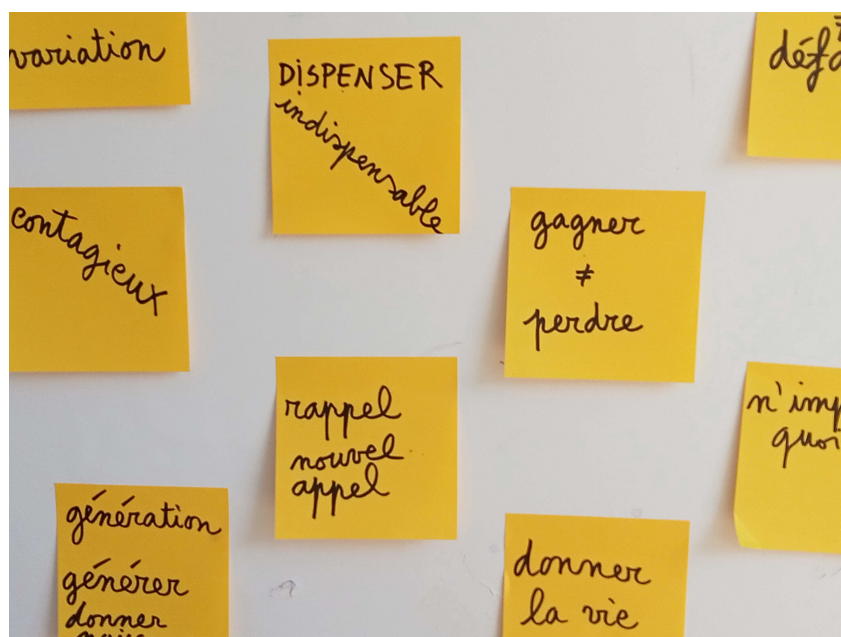 variation
DISPENSER
indispensable
contagieux
gagner
≠
perdre
rappel
nouvel
appel
génération
générer
donner
donner
la vie
n'imp
quoi